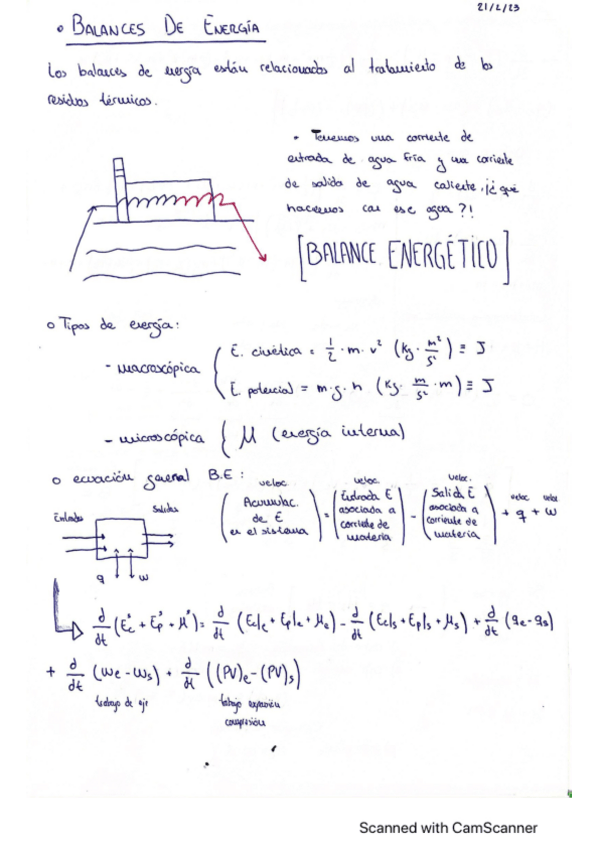 21/2/23
• BALANCES DE ENERGÍA
Los balances de energía están relacionados al tratamiento de los
residuos térmicos.
• Tenemos una corriente de
entrada de agua fría y una corriente
de salida de agua caliente, ¡¿qué
hacemos con ese agua?!
[BALANCE ENERGÉTICO]
o Tipos de energía:
- macroscópica
E. cinética = 1/2 · m · v² (Kg · m²/s²) ≡ J
E. potencial = m·g·h (Kg · m/s² · m) ≡ J
- microscópica { μ (energía interna)
o ecuación general B.E:
Entradas
Salidas
q w
veloc. veloc. veloc. veloc veloc
(Acumulac. de E en el sistema) = (Entrada E asociada a corriente de materia) - (Salida E asociada a corriente de materia) + q + w
d/dt (Ec° + Ep° + μ°) = d/dt (Ec|e + Ep|e + μe) - d/dt (Ec|s + Ep|s + μs) + d/dt (qe - qs)
+ d/dt (we - ws) + d/dt ((PV)e - (PV)s)
trabajo de eje
trabajo expansión
compresión
Scanned with CamScanner